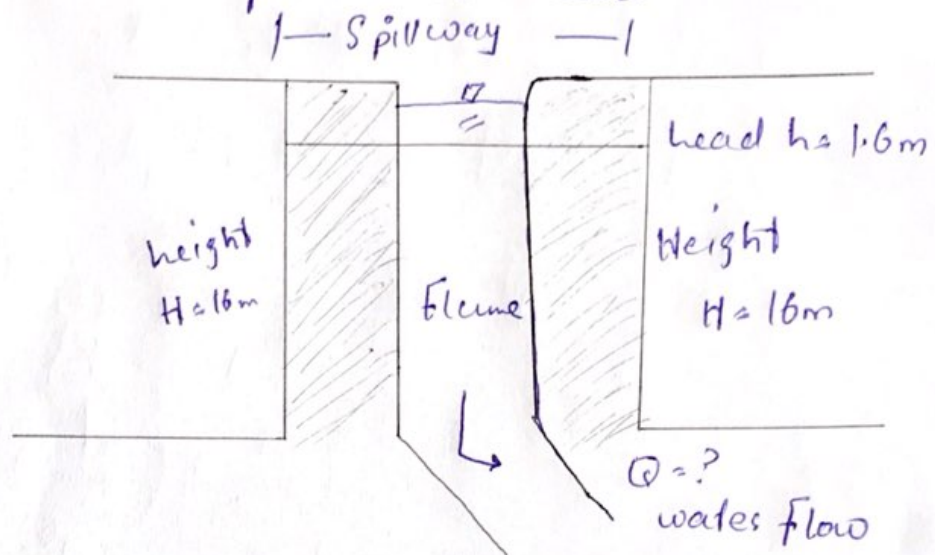 |— Spillway —|
head h = 1.6m
height
H = 16m
Flume
Height
H = 16m
Q = ?
water Flow